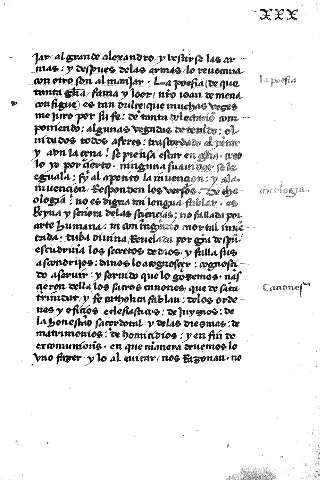 XXX
jar al grande alexandro y vestirse las ar
mas: y despues delas armas lo revocaua
con otro son al manjar. La poesia (de que
tanta gloria fama y loor nro joan de mena
consigue) es tan dulce que muchas vezes
me juro por su fe: de tanta delectacion com
poniendo: algunas vegadas detenido: ol
uidados todos aferes: trascordado el yantar
y avn la cena: se piensa estar en gloria. creo
lo yo por cierto. ninguna suauidad se le
eguala: si al apetito la inuencion: y ala
inuencion. Responden los versos. La the
ologia: no es digna mi lengua fablar. es
Reyna y señora delas sciencias: no fallada por
arte humana: ni con ingenio mortal inuen
tada: tuba diuina Reuelada por gracia de spu
escudriña los secretos de dios. y falla sus
ascondrijos: danos lo a cognoscer: cognosci
do a seruir: y seruido que lo gozemos. nas
cieron della los sacros canones que de sancta
trinidat y fe catholica fablan: delos orde
nes y oficios eclesiasticos: de juyzios: de
la honestad sacerdotal y delas diezmas: de
matrimonios: de homicidios: y en fin de
excomuniones. en que manera deuemos lo
vno fazer y lo al euitar. nos Razonan. no
la poesia
theologia.
Canones